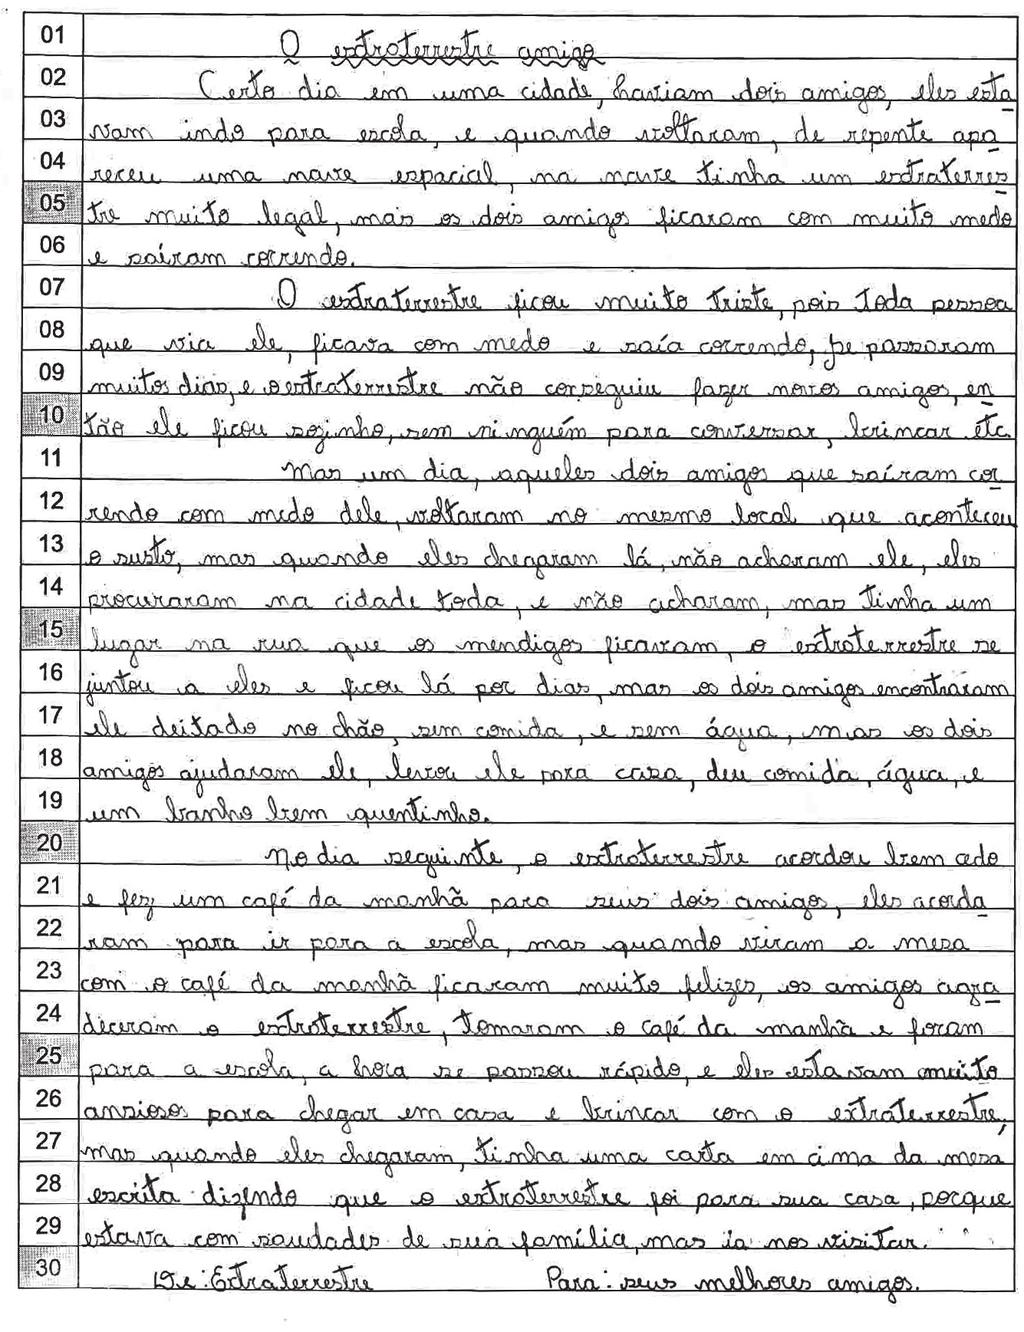 01 O extraterrestre amigo
02 Certo dia em uma cidade, haviam dois amigos, eles esta
03 vam indo para escola, e quando voltaram, de repente apa
04 receu uma nave espacial, na nave tinha um extraterres
05 tre muito legal, mais os dois amigos ficaram com muito medo
06 e saíram correndo.
07 O extraterrestre ficou muito triste, pois toda pessoa
08 que via ele, ficava com medo e saía correndo, se passaram
09 muitos dias, e o extraterrestre não conseguiu fazer novos amigos, en
10 tão ele ficou sozinho, sem ninguém para conversar, brincar etc.
11 Mas um dia, aqueles dois amigos que saíram cor
12 rendo com medo dele, voltaram no mesmo local que aconteceu
13 o susto, mas quando eles chegaram lá, não acharam ele, eles
14 procuraram na cidade toda, e não acharam, mas tinha um
15 lugar na rua que os mendigos ficavam, o extroterrestre se
16 juntou a eles e ficou lá por dias, mas os dois amigos encontraram
17 ele deitado no chão, sem comida, e sem água, mas os dois
18 amigos ajudaram ele, levou ele para casa, deu comida, água, e
19 um banho bem quentinho.
20 No dia seguinte, o extroterrestre acordou bem cedo
21 e fez um café da manhã para seus dois amigos, eles acorda
22 ram para ir para a escola, mas quando viram a mesa
23 com o café da manhã ficaram muito felizes, os amigos agra
24 deceram o extroterrestre, tomaram o café da manhã e foram
25 para a escola, a hora se passou rápido, e eles estavam muito
26 ansiosos para chegar em casa e brincar com o extraterrestre,
27 mas quando eles chegaram, tinha uma carta em cima da mesa
28 escrita dizendo que o extroterrestre foi para sua casa, porque
29 estava com saudades de sua família, mas ia nos visitar.
30 De: Extraterrestre Para: seus melhores amigos.